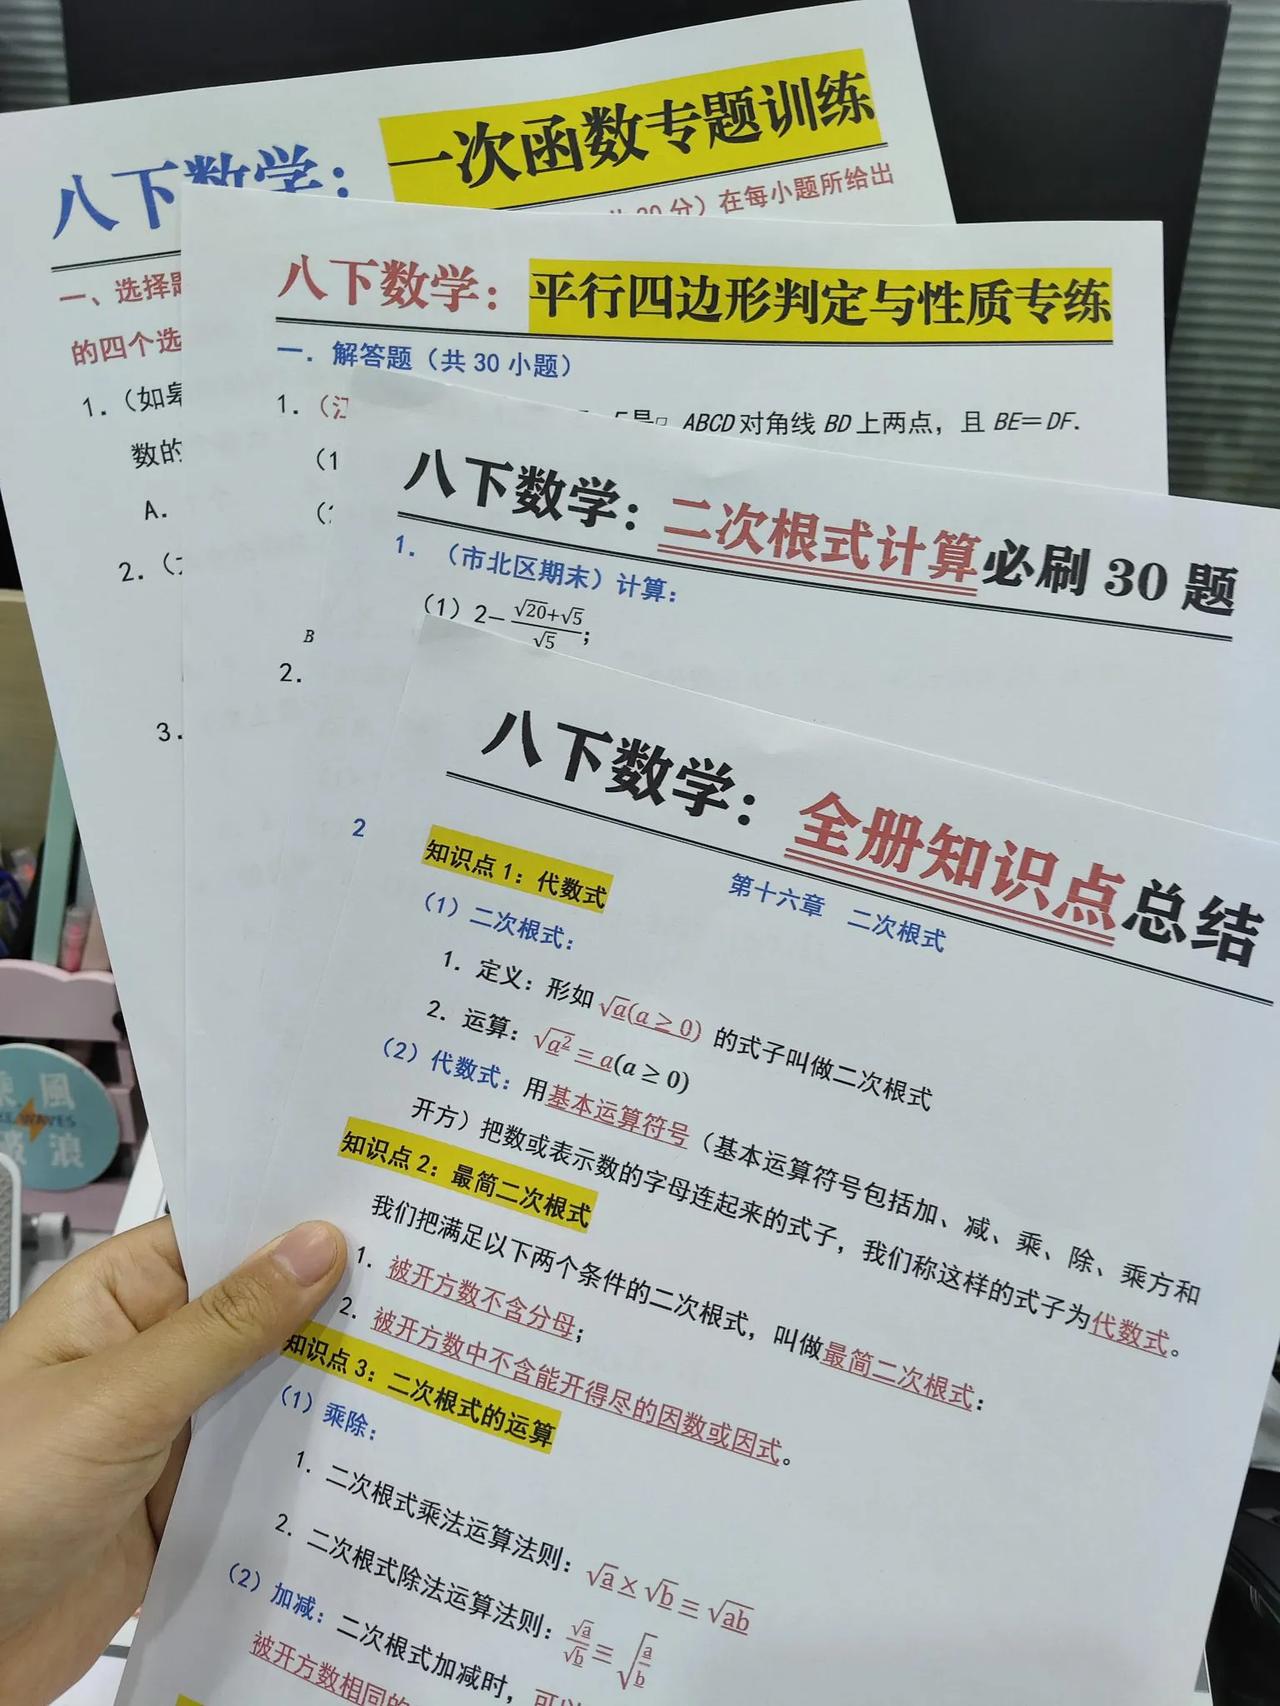 八下数学：一次函数专题训练
分）在每小题所给出
一、选择题
的四个选
1.（如皋
数的
A.
2.（
3.
八下数学：平行四边形判定与性质专练
一．解答题（共 30 小题）
1.（江
F是▱ABCD 对角线 BD 上两点，且 BE＝DF．
（1
（2
B
2.
八下数学：二次根式计算必刷 30 题
1. （市北区期末）计算：
（1）2−(√20+√5)/√5；
2
八下数学：全册知识点总结
第十六章 二次根式
知识点 1：代数式
（1）二次根式：
1. 定义：形如 √a(a ≥ 0) 的式子叫做二次根式
2. 运算：√a² = a(a ≥ 0)
（2）代数式：用基本运算符号（基本运算符号包括加、减、乘、除、乘方和
开方）把数或表示数的字母连起来的式子，我们称这样的式子为代数式。
知识点 2：最简二次根式
我们把满足以下两个条件的二次根式，叫做最简二次根式：
1. 被开方数不含分母；
2. 被开方数中不含能开得尽的因数或因式。
知识点 3：二次根式的运算
（1）乘除：
1. 二次根式乘法运算法则：√a × √b = √ab
2. 二次根式除法运算法则：√a/√b = √(a/b)
（2）加减：二次根式加减时，可以
被开方数相同的
乘風
WAVES
破浪